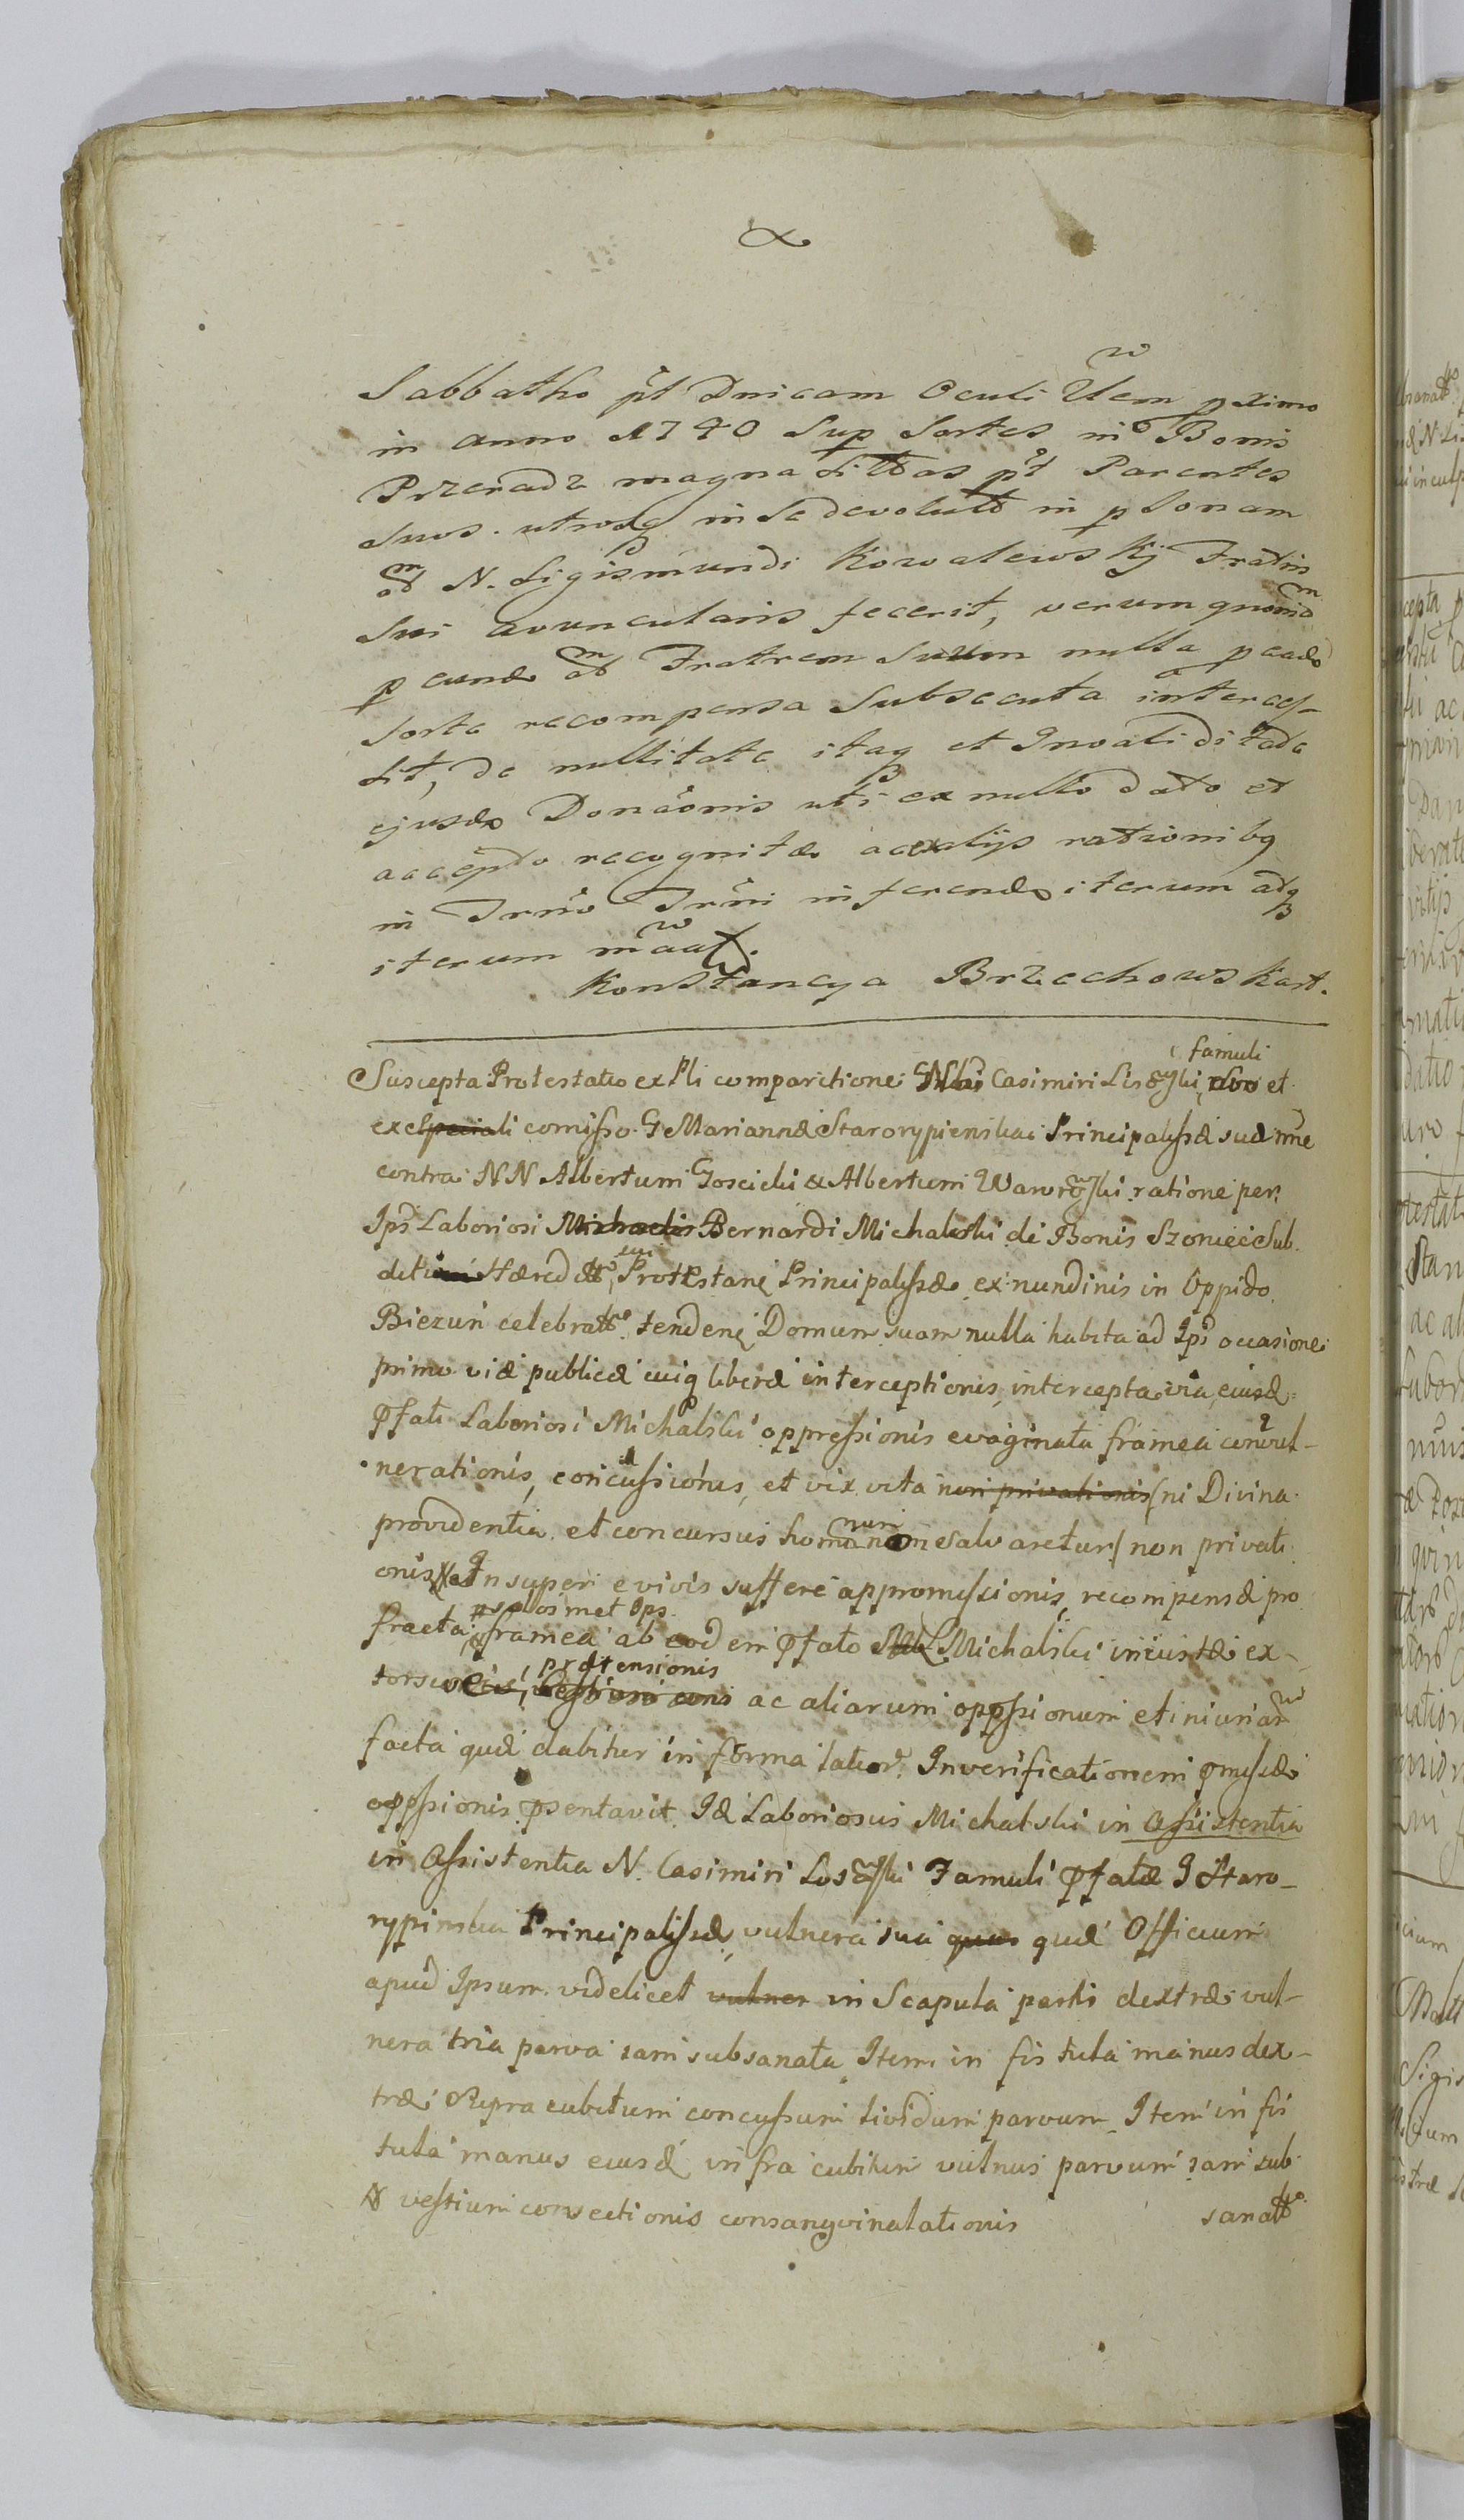 Sabbatho pt Dnicam Oculi Utem pximo
in anno 1740 Sup Sortes in Bonis
Przeradz magna sittas pt Parentes
suos utrosq in Se devolutt in psonam
N. Sigismundi Kowalewskj Fratris
Sui avuncularis fecerit, verum quoniã
p eund Fratrem Suum nulla p eade
Sorte recompensa Subsecuta interces-
sit, de nullitate itaq et Invaliditate
ejusde Donaõnis uti ex nullo dato et
accepto recognitæ ac ex alijs rationibq
in Trno Trni inferend iterum atq
iterum
Konstancya Brzechowska
famuli
Suscepta Protestatio ex Pli comparitione Nbis Casimiri Lisowski, et
ex Speciali comisso G Mariannæ Starorypienskiei Principalissæ suæ nne
contra NN Albertum Goscicki & Albertum Wawrowski ratione per
Ips Laboriosi Michaelis Bernardi Michalski de Bonis Szoniec Sub
ditum Hæreditt, Protestane Principalissæ ex nundinis in Oppido
Biezun celebratts tendene Domum suam nulla habita ad Ips occasione
primo viæ publicæ cuiq liberæ interceptionis, intercepta via, eiusd
Pfati Laboriosi Michalski oppressionis evaginata framea convul-
nerationis, concussionis, et vix vita non privationis (ni Divina
providentia et concursus homanom salvaretur) non privati
onis Insuper e vivis suffere appromissionis, recompensæ pro
solos met Ips
fracta framea ab eodem Pfato L Michalski iniustæ ex-
prætensionis
torsionis, ac aliarum oppssionum et iniuriar
facta quæ dabitur in forma latior. In verificationem Pmissæ
oppssionis Psentavit Id Laboriosus Michalski in Assistentia
in Assistentia N. Casimiri Losowski Famuli Pfatæ G Staro-
rypinska Principalissæ, vulnera sua quas quæ Officium
apud Ipsum videlicet vulner in Scapula partis dextræ vul-
nera tria parva iam subsanata Item in fistula manus dex-
træ supra cubitum concussum lividum parvum, Item in fis
tula manus eiusd infra cubitum vulnus parvum iam sub
sanatt
vestium consectionis consangvinolationis